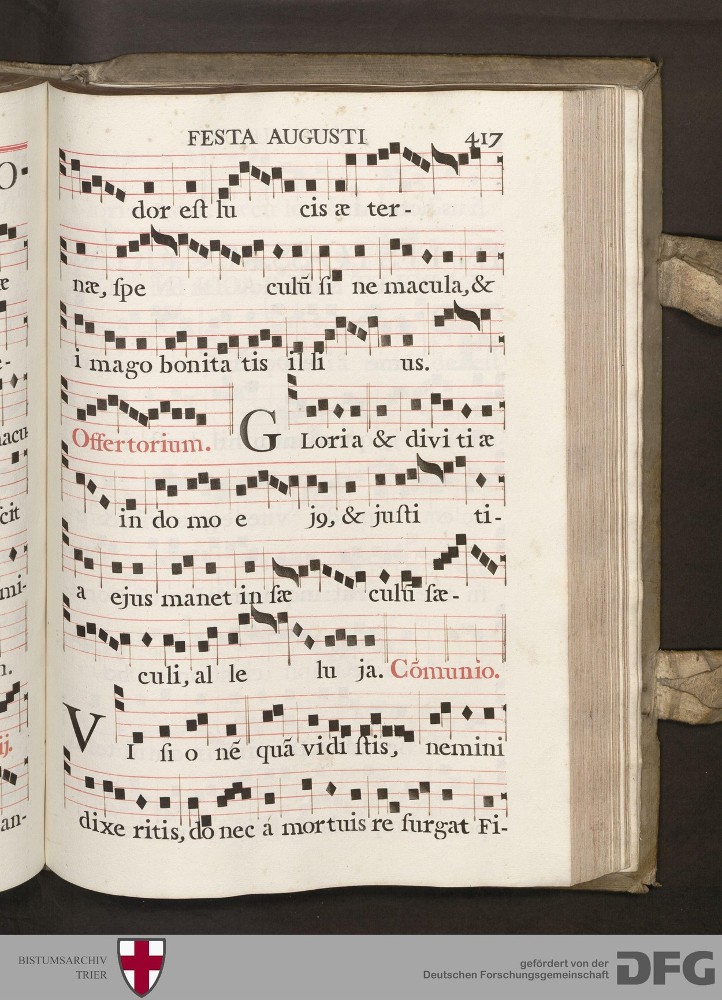 FESTA AUGUSTI 417
dor est lu cis æ ter-
næ, spe culū si ne macula, &
i mago bonita tis il li us.
Offertorium. GLoria & diviti æ
in do mo e jꝯ, & justi ti-
a ejus manet in sæ culū sæ-
culi, al le lu ja. Cōmunio.
VI si o nē quā vidi stis, nemini
dixe ritis, do nec á mortuis re surgat Fi-
BISTUMSARCHIV
TRIER
gefördert von der
Deutschen Forschungsgemeinschaft
DFG